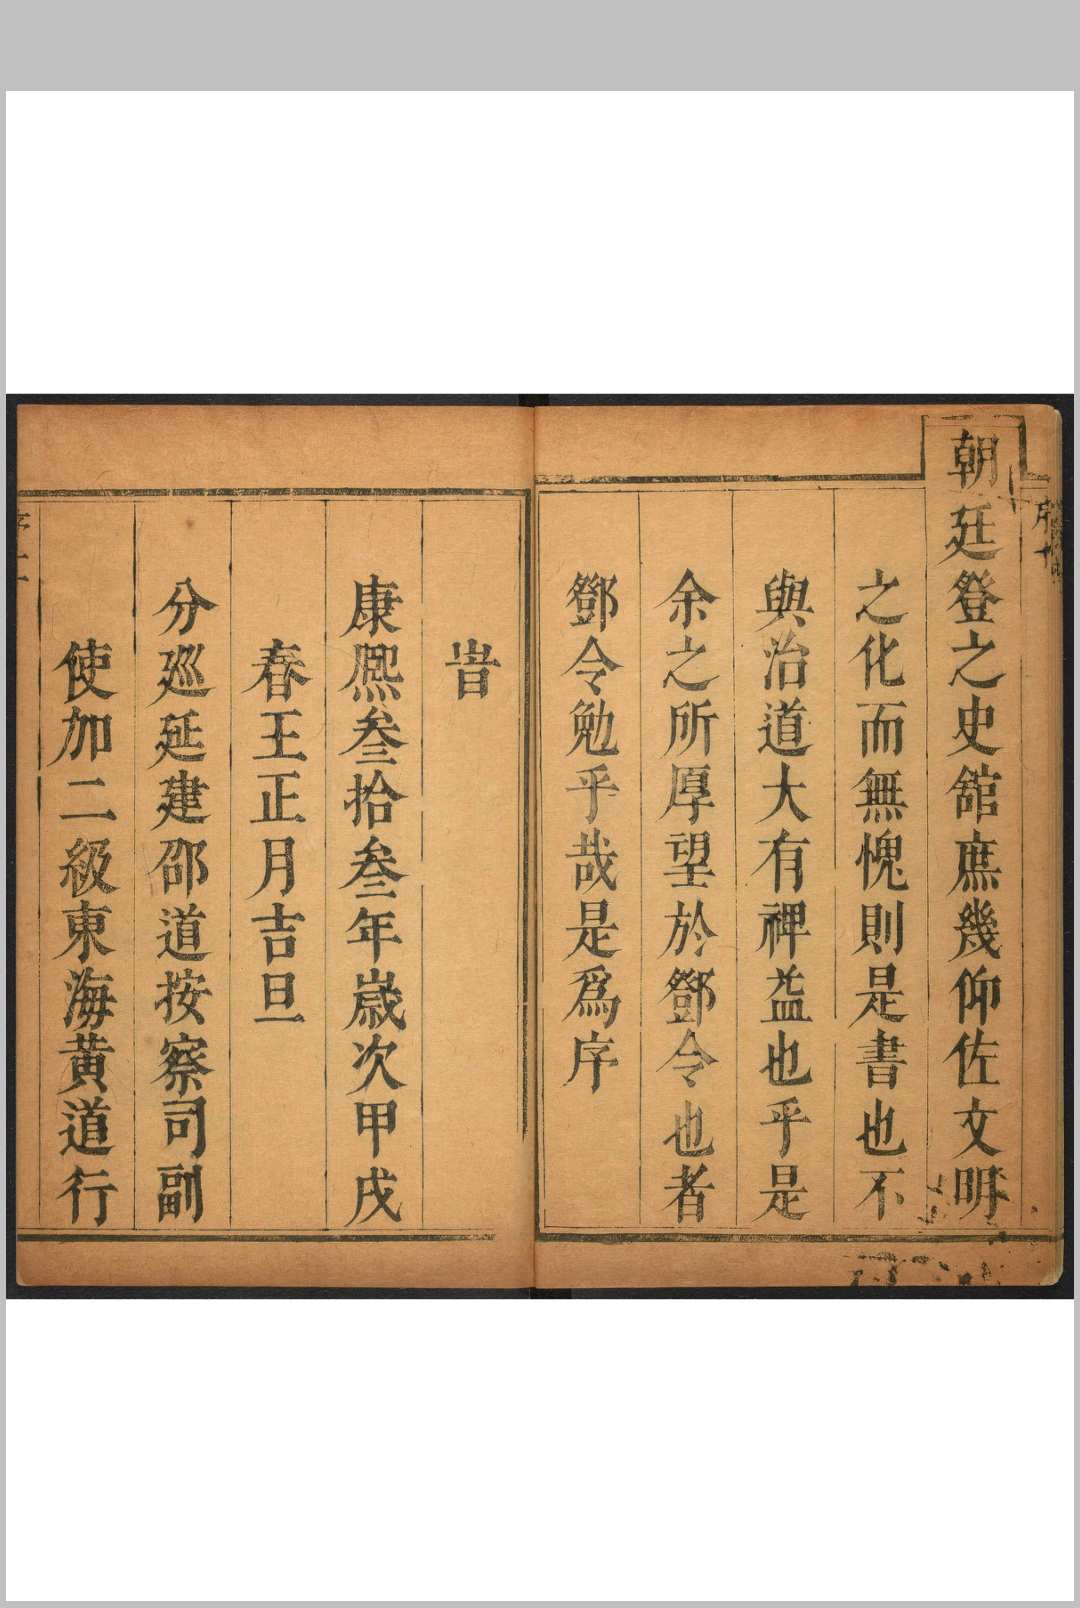 朝廷登之史舘庶幾仰佐文明
之化而無愧則是書也不
與治道大有裨益也乎是
余之所厚望於鄧令也者
鄧令勉乎哉是爲序
旹
康熈叁拾叁年歲次甲戌
春王正月吉旦
分廵延建邵道按察司副
使加二級東海黄道行